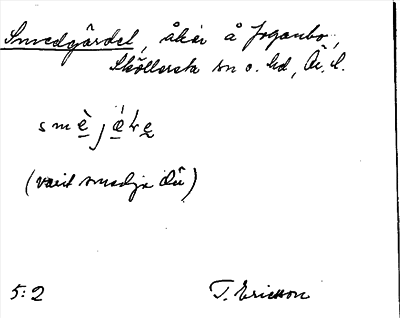 Smedgärdet, åker å Joganbo,
Sköllersta sn o. hd, Ör. l.
s m è j ǽ ƕ e
(varit smedja där)
5:2 T. Ericsson